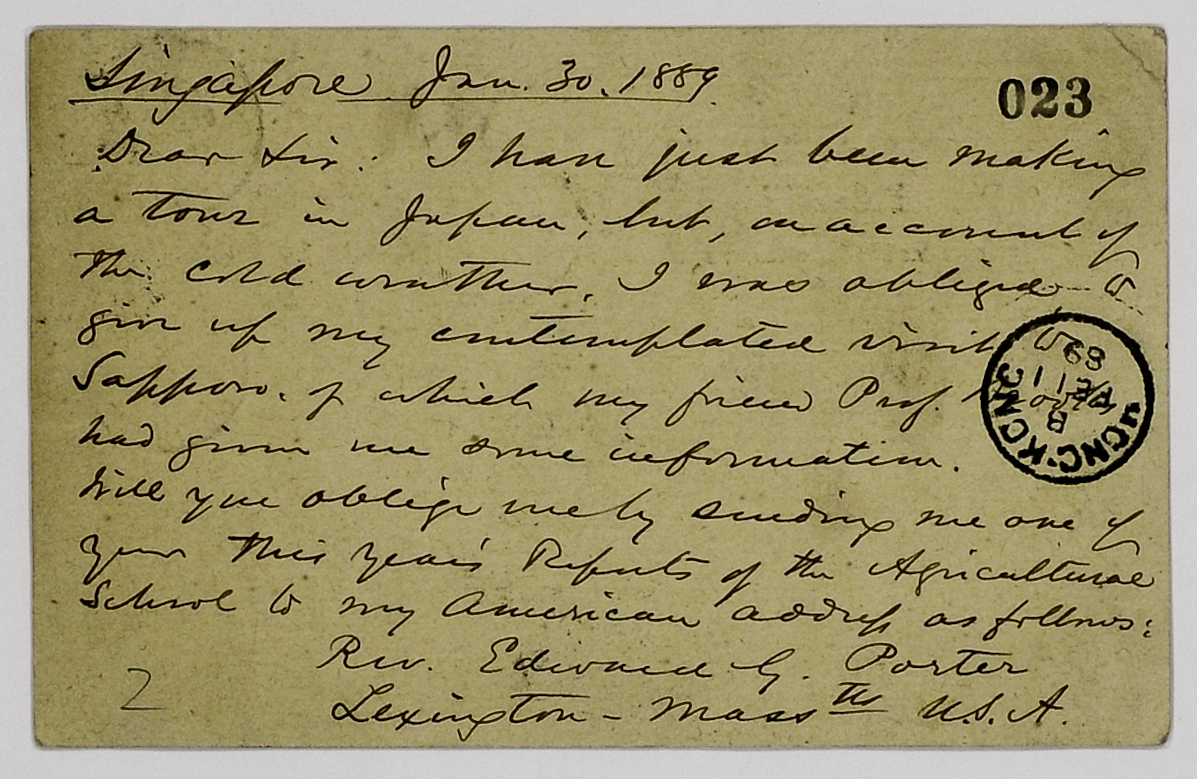 Singapore Jan. 30. 1889.
023
Dear Sir: I have just been making
a tour in Japan, but, on account of
the cold weather, I was obliged to
give up my contemplated visit to
Sapporo, of which my friend Prof.
had given me some information.
Will you oblige me by sending me one of
your this year's Reports of the Agricultural
School to my American address as follows:
Rev. Edward G. Porter
Lexington - Massts U.S.A.
2
B
FE 11
89